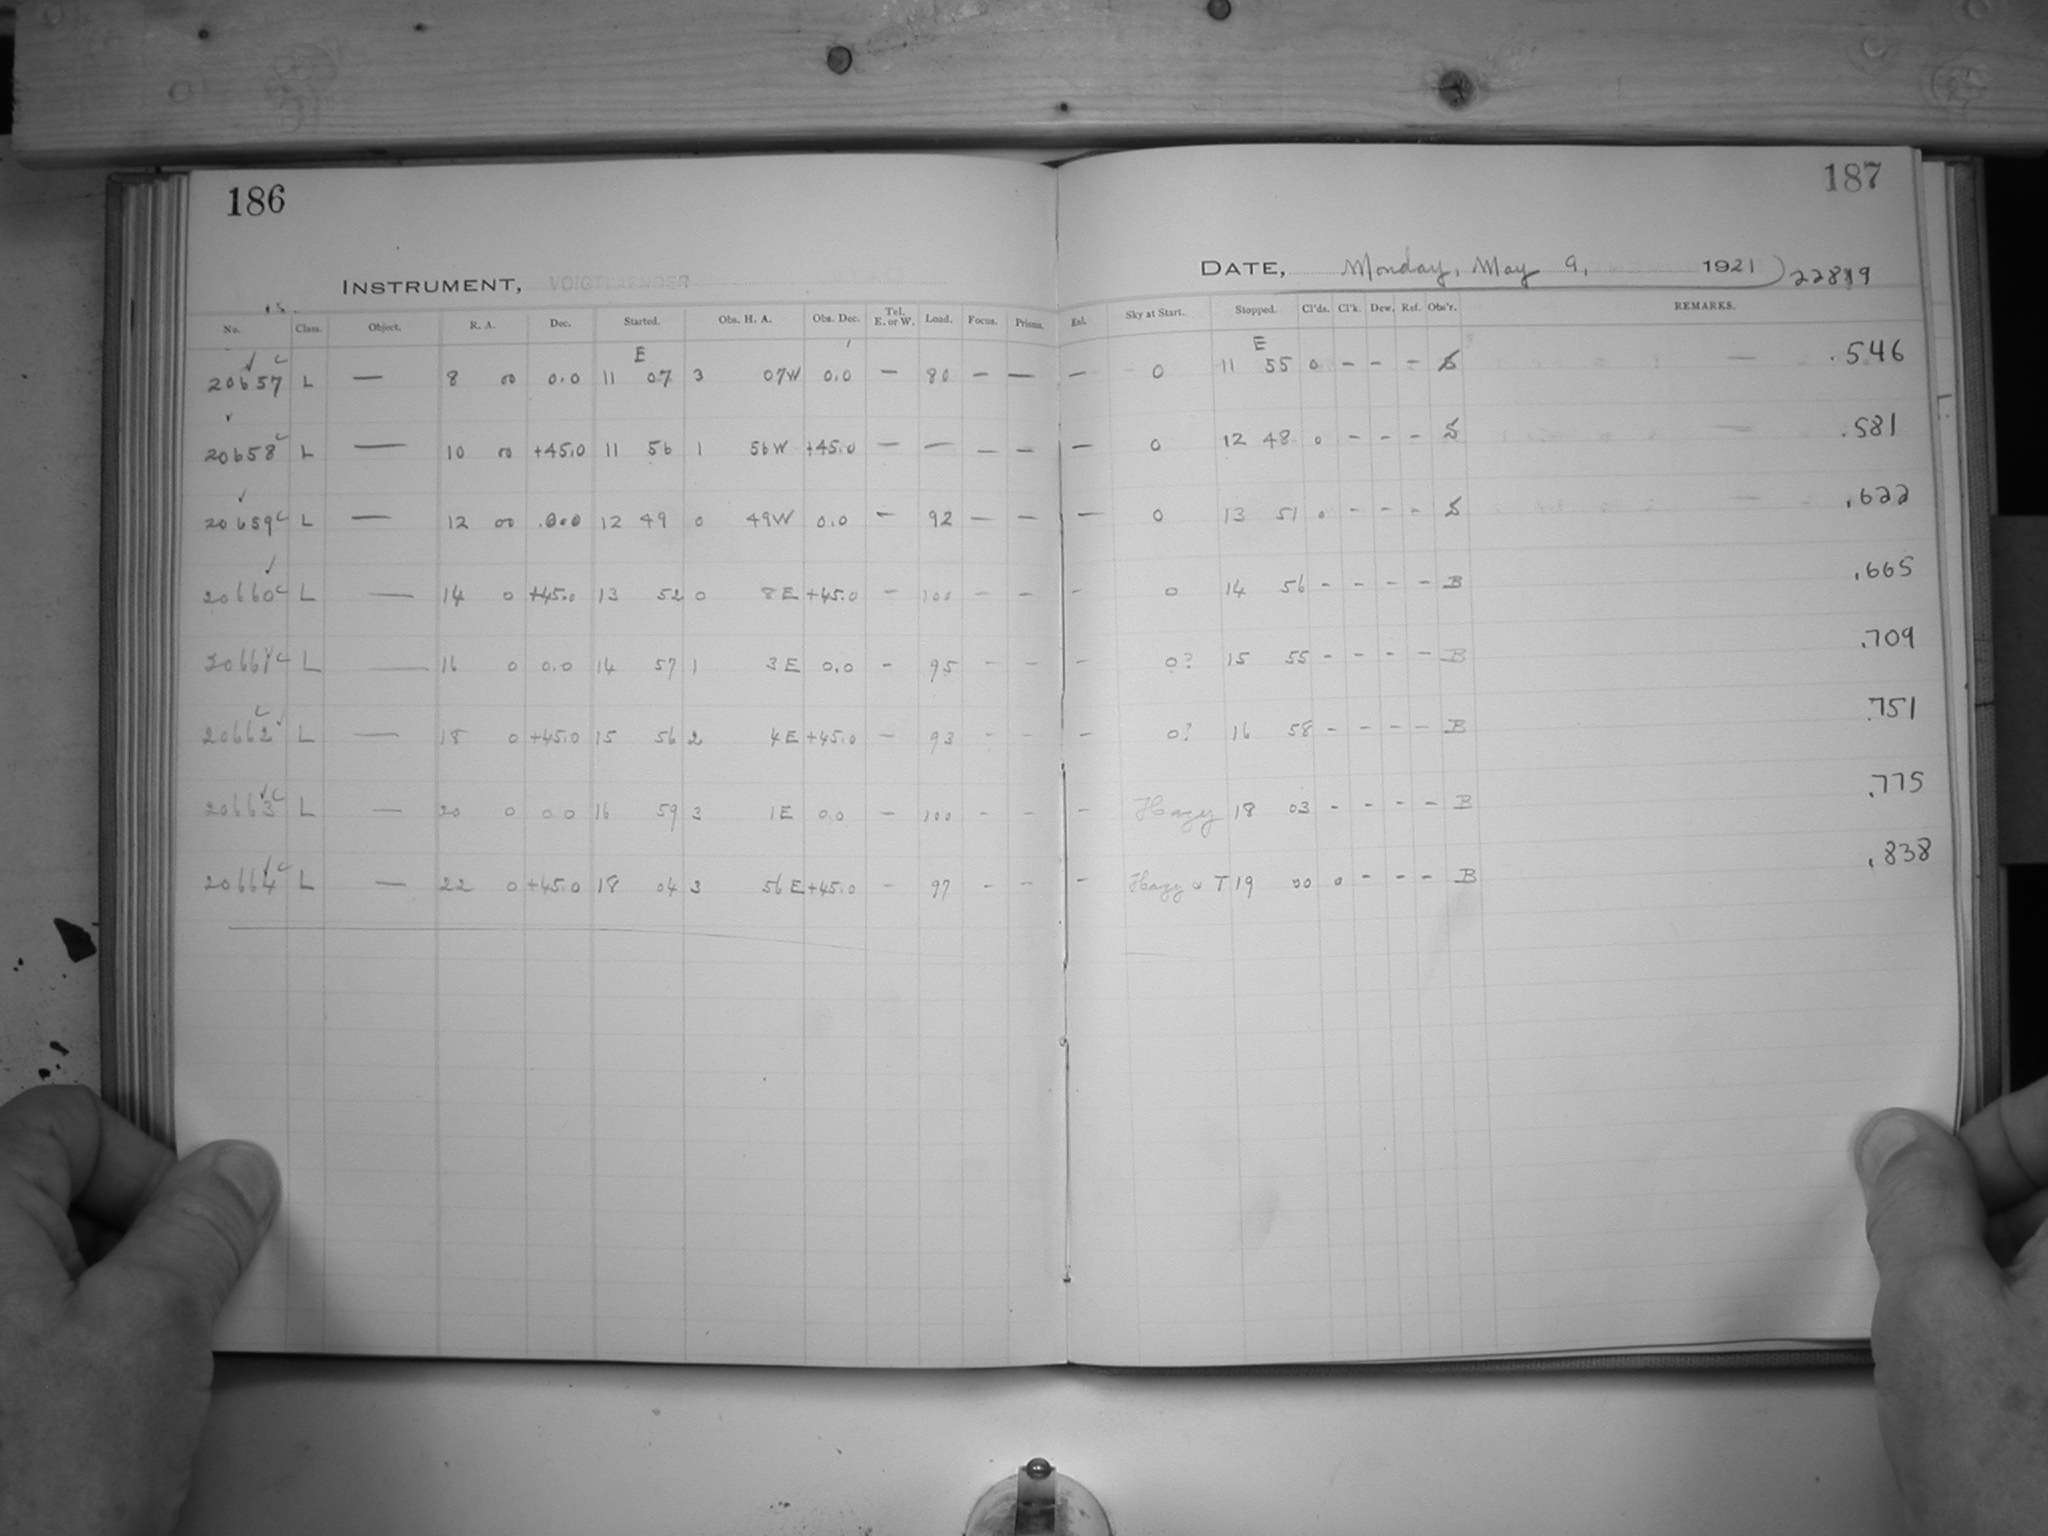 186
187
INSTRUMENT, VOIGTLAENDER
DATE, Monday, May 9, 1921 22819
No. Class. Object. R. A. Dec. Started. Obs. H. A. Obs. Dec. Tel. E. or W. Load. Focus. Prisms. Exl. Sky at Start. Stopped. Cl'ds. Cl'k. Dew. Ref. Obs'r. REMARKS.
E E
20657 c L — 8 00 0.0 11 07 3 07W 0.0 — 80 — — — 0 11 55 0 - - - S .546
20658 c L — 10 00 +45.0 11 56 1 56W +45.0 — — — — — 0 12 48 0 - - - S .581
20659 c L — 12 00 0.0 12 49 0 49W 0.0 — 92 — — — 0 13 51 0 - - - S .622
20660 c L — 14 0 +45.0 13 52 0 8E +45.0 - 100 - - - 0 14 56 - - - - B .665
20661 c L — 16 0 0.0 14 57 1 3E 0.0 - 95 - - - 0? 15 55 - - - - B .709
20662 c L — 18 0 +45.0 15 56 2 4E +45.0 - 93 - - - 0? 16 58 - - - - B .751
20663 c L — 20 0 0.0 16 59 3 1E 0.0 - 100 - - - Hazy 18 03 - - - - B .775
20664 c L — 22 0 +45.0 18 04 3 56E +45.0 - 97 - - - Hazy & T 19 00 0 - - - B .838